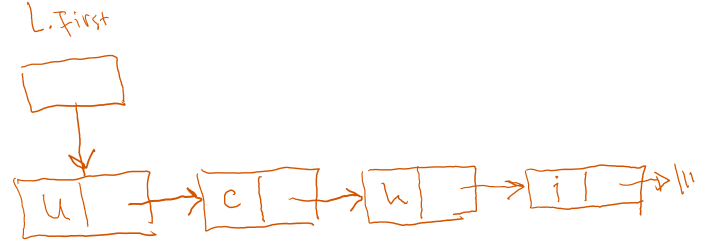 L.first
u c h i